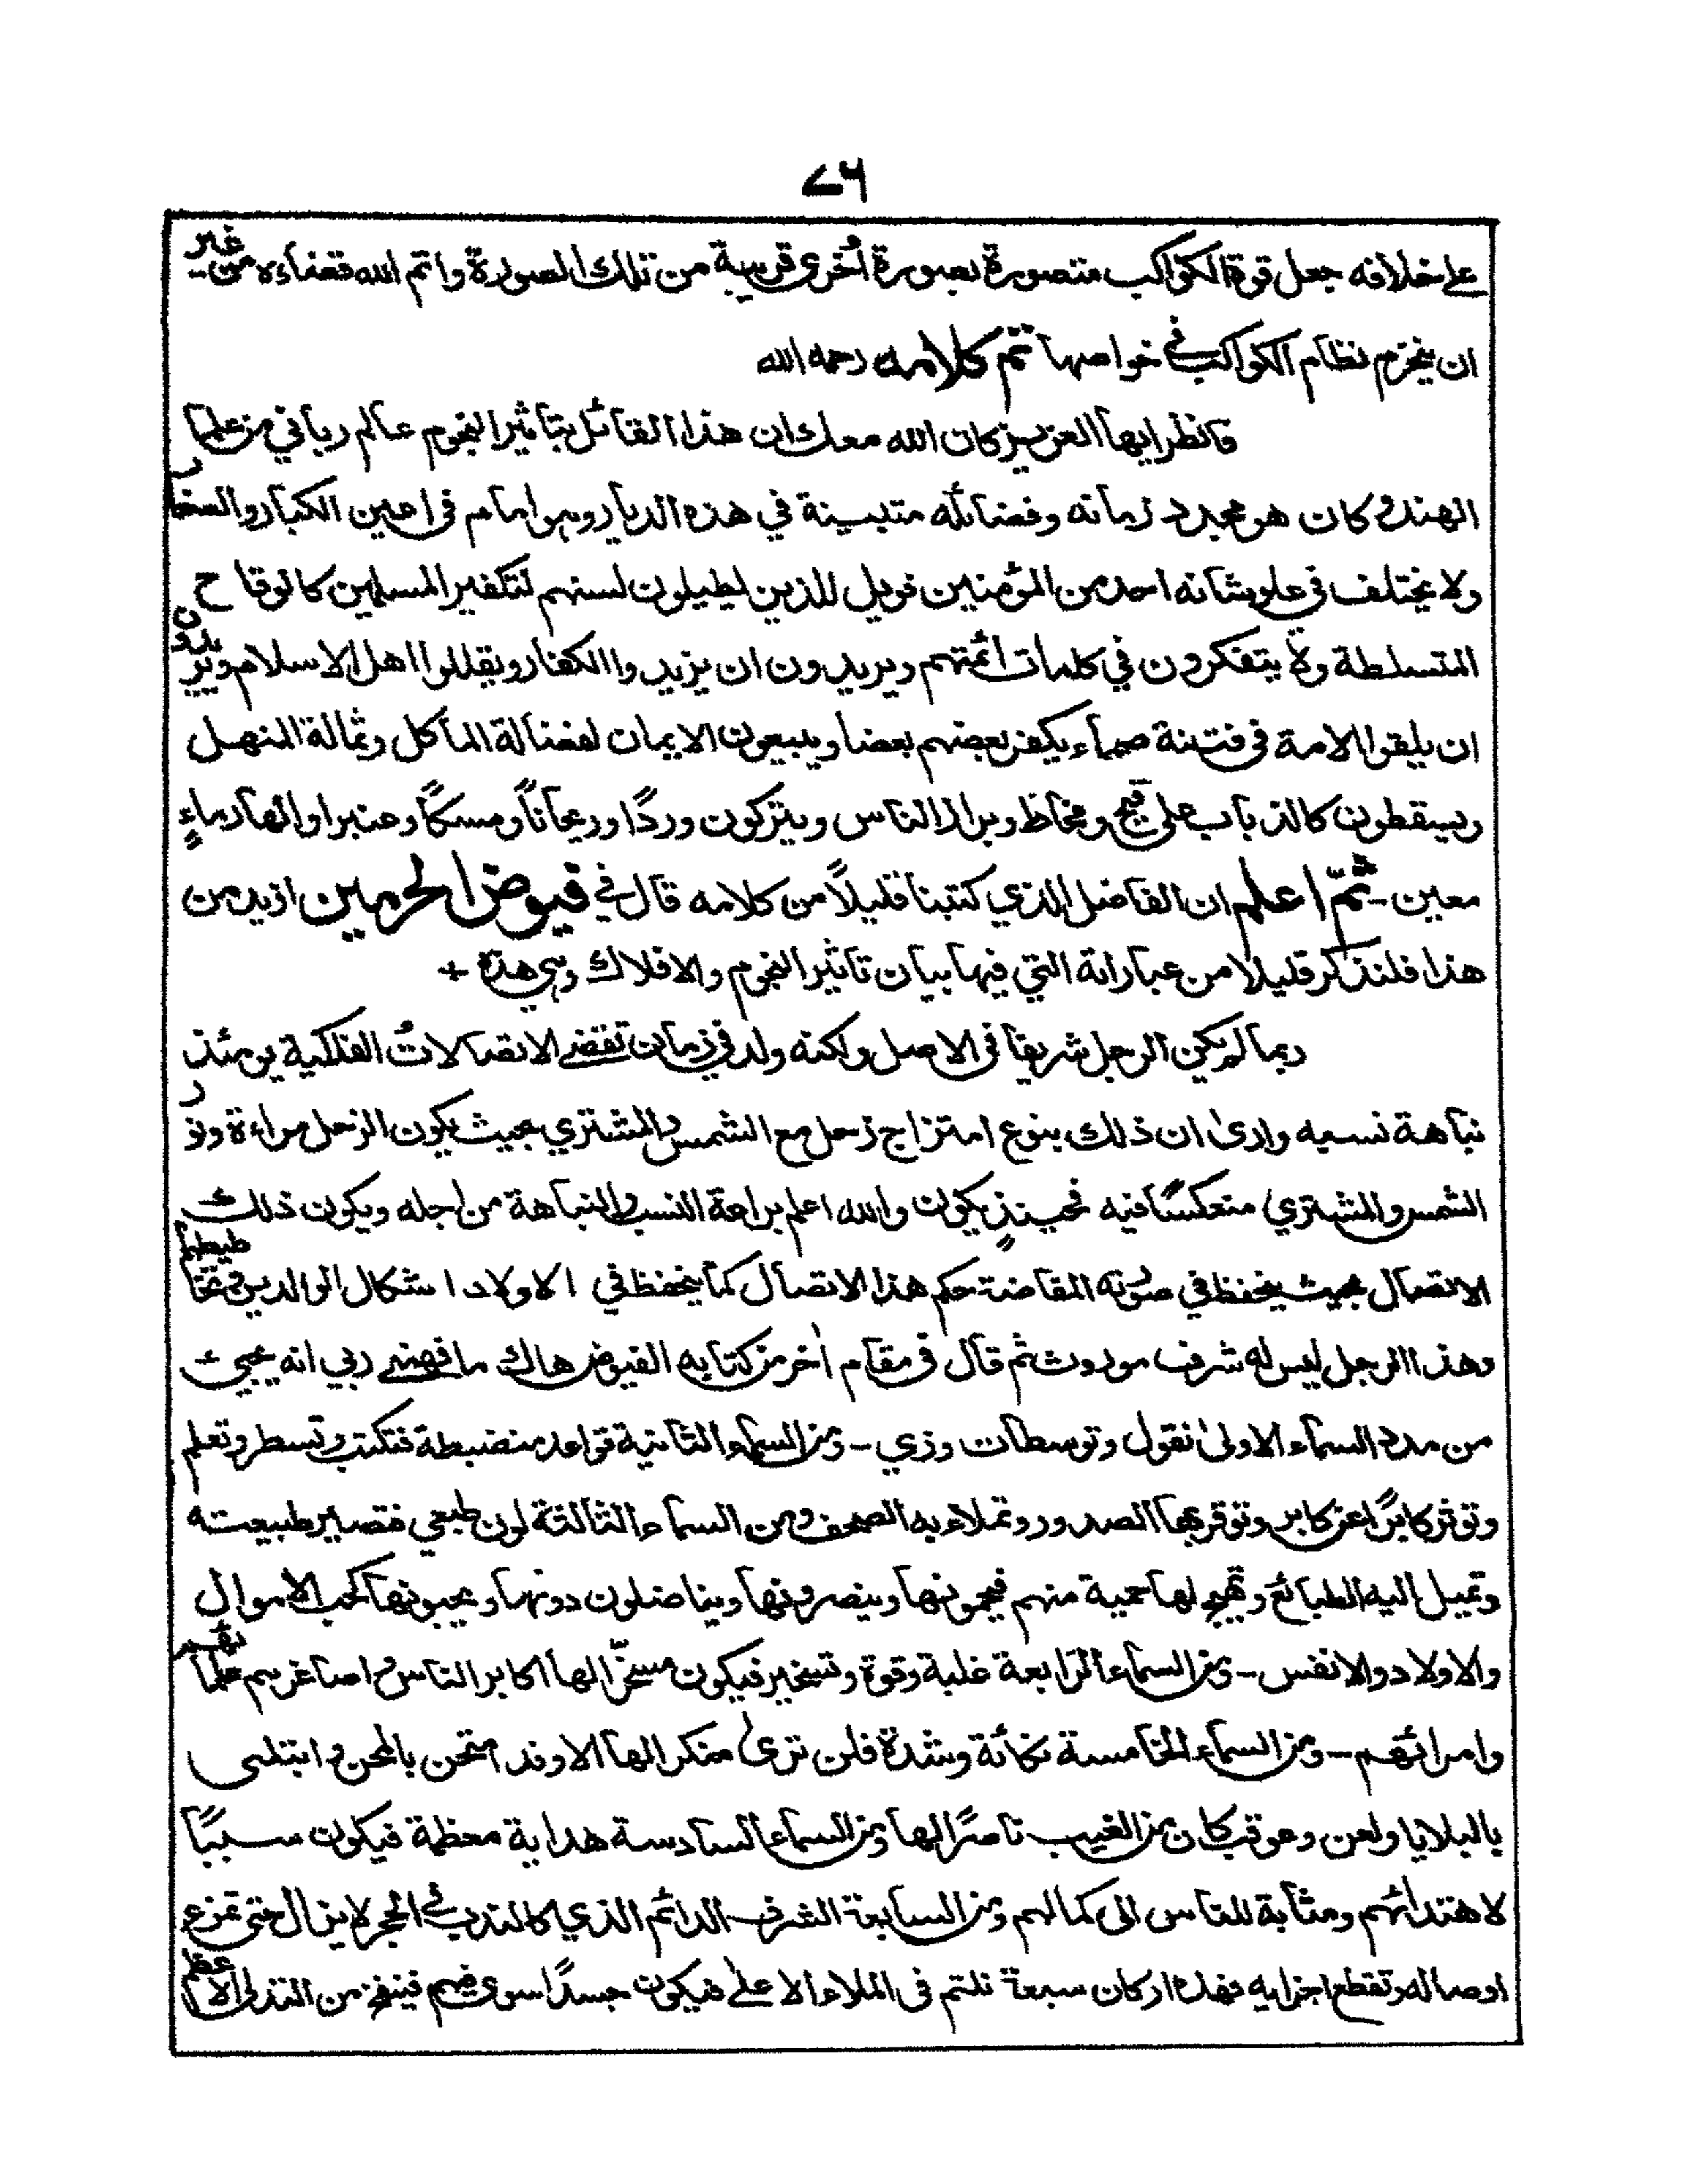 ٧٦
على خلافه جعل قوة الكواكب متصورة بصورة أُخرى قريبة من تلك الصورة واتم الله قضاءه من غير
ان ينخرم نظام الكواكب في خواصها تم كلامه رحمه الله
فانظر ايها العزيز كان الله معك ان هذا القائل بتاثير النجوم عالم رباني من علماء
الهند وكان هو مجدد زمانه وفضائله متبينة في هذه الديار وهو امام في اعين الكبار والصغار
ولا يختلف في علو شانه احد من المؤمنين فويل للذين يطيلون لسنهم لتكفير المسلمين كالوقاح
المتسلطة ولا يتفكرون في كلمات ائمتهم ويريدون ان يزيدوا الكفار ويقللوا اهل الاسلام ويريدون
ان يلقوا الامة في فتنة صماء يكفر بعضهم بعضا ويبيعون الايمان لفضالة المأكل وثمالة المنهل
ويسقطون كالذباب على قيح ومخاط وبراز الناس ويتركون وردًا وريحانًا ومسكًا وعنبرا وانهار ماءٍ
معين - ثمّ اعلم ان الفاضل الذي كتبنا قليلًا من كلامه قال في فيوض الحرمين ازيد من
هذا فلنذكر قليلا من عباراته التي فيها بيان تاثير النجوم والافلاك وهي هذه +
ربما لم يكن الرجل شريفا في الاصل ولكنه ولد في زمان تقتضي الاتصالاتُ الفلكية يومئذ
نباهة نسبه وارىٰ ان ذلك بنوع امتزاج زحل مع الشمس والمشتري بحيث يكون الزحل مراءة ونور
الشمس والمشتري منعكسًا فيه فحينئذٍ يكون والله اعلم براعة النسب والنباهة من اجله ويكون ذلك
الاتصال بحيث ينحفظ في صورته المفاضة حكم هذا الاتصال كما ينحفظ في الاولاد اشكال الوالدين وتخاطيطها
وهذا الرجل ليس له شرف موروث ثم قال في مقام اٰخر من كتابه الفيوض هاك ما فهمني ربي انه يجيء
من مدد السماء الاولىٰ نقول وتوسطات وزي - ومن السماء الثانية قواعد منضبطة فتكتب وتسطر وتعلم
وتوثر كابرًا عن كابر وتوقر بها الصدور وتملاء به الصحف ومن السماء الثالثة لون طبعي فتصاير طبيعته
وتميل اليه الطبائع وتهيج لها حمية منهم فيحمونها وينصرونها ويناضلون دونها ويحبونها كحب الاموال
والاولاد والانفس - ومن السماء الرابعة غلبة وقوة وتسخير فيكون مسخّرا لها اكابر الناس واصاغرهم علمائهم
وامرائهم - ومن السماء الخامسة نكائة وشدة فلن ترىٰ منكرا لها الا وقد امتحن بالمحن وابتلى
بالبلايا ولعن وعوقب كان من الغيب ناصرًا لها ومن السماء السادسة هداية معظمة فيكون سببًا
لاهتدائهم ومثابة للناس الى كمالهم ومن السابعة الشرف الدائم الذي كالندب في الحجر لا يزال حتى تمزع
اوصاله وتقطع اجزايه فهذه اركان سبعة تلتم في الملاء الاعلى فيكون جسدًا سوى فيهم فينفخ من التدلى الاعظم